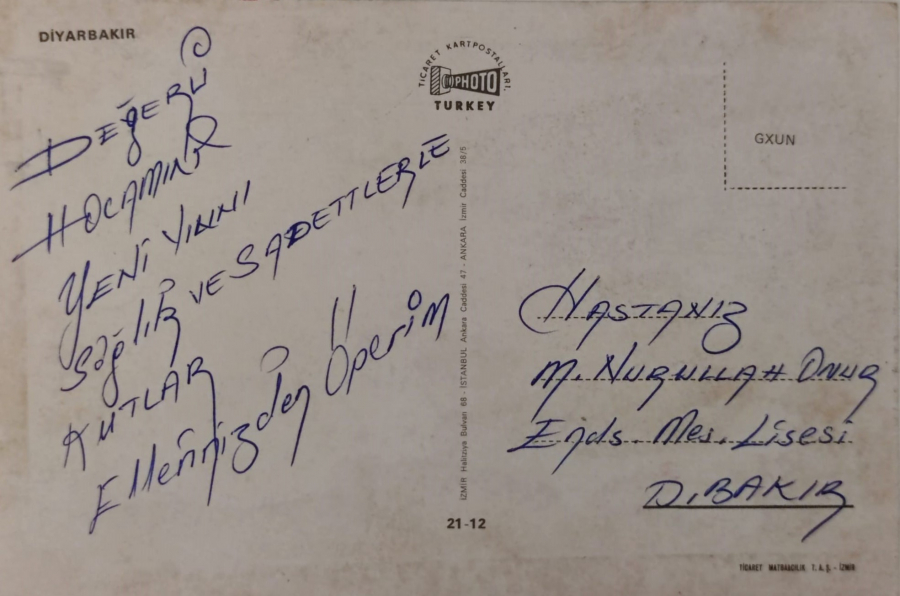 DİYARBAKIR
DEĞERLİ
HOCAMINA
YENİ YILINI
SAĞLIK VE SADETTLERLE
KUTLAR
Ellerinizden Öperim
TİCARET KARTPOSTALLARI.
PHOTO
TURKEY
İZMİR Halitziya Bulvarı 68 - İSTANBUL Ankara Caddesi 47 - ANKARA İzmir Caddesi 38/5
21-12
GXUN
HASTANIZ
M. NURULLAH ONUR
Ends. Mes. Lisesi
D.BAKIR
TİCARET MATBAACILIK T.A.Ş. - İZMİR